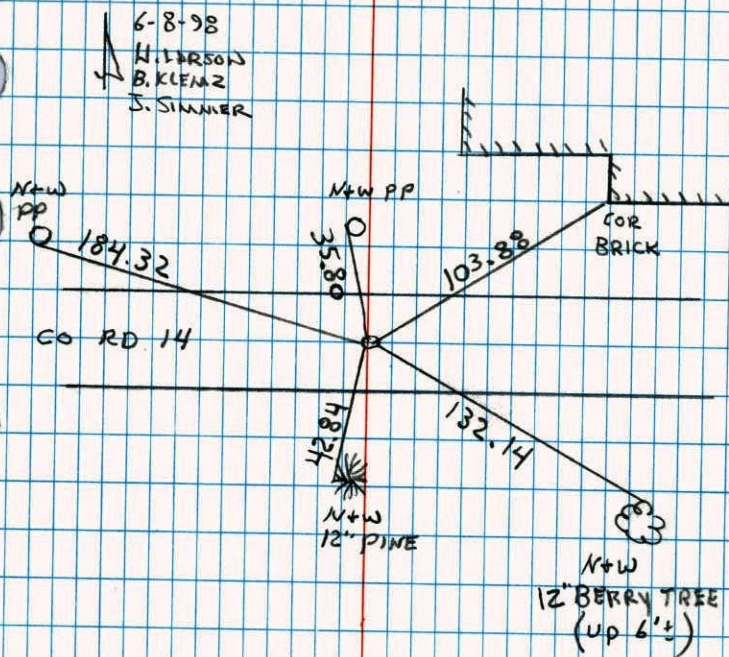 6-8-98
H. LARSON
B. KLEMZ
J. SIMNIER
N+W
PP
184.32
N+W PP
35.80
103.88
COR
BRICK
CO RD 14
42.84
132.14
N+W
12" PINE
N+W
12" BERRY TREE
(UP 6'±)